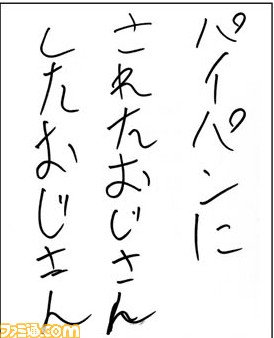 パイパンに
されたおじさん
したおじさん
ファミ通.com